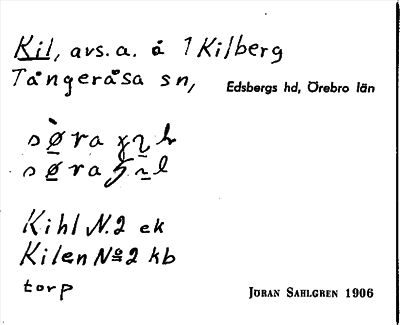 Kil, avs. a. å 1 Kilberg
Tångeråsa sn,
Edsbergs hd, Örebro län
Kihl N. 2 ek
Kilen No 2 kb
torp
JÖRAN SAHLGREN 1906